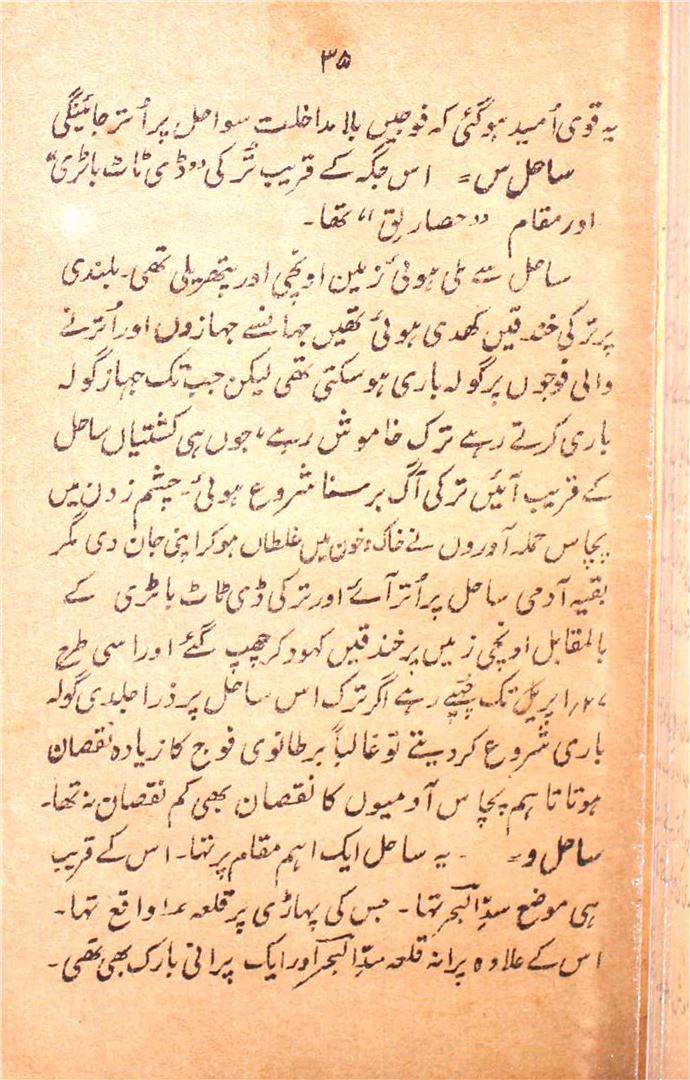 ۳۵
یہ قوی اُمید ہوگئی کہ فوجیں بلا مداخلت سواحل پر اُتر جائینگی
ساحل س = اس جگہ کے قریب تُرکی ”ڈی ٹاٹ باٹری“
اور مقام ”حصارلیق“ تھا۔
ساحل سے ملی ہوئی زمین اونچی اور پتھریلی تھی۔ بلندی
پر ترکی خندقیں کھدی ہوئی تھیں جہانسے جہازوں اور اُترنے
والی فوجوں پر گولہ باری ہو سکتی تھی لیکن جب تک جہاز گولہ
باری کرتے رہے ترک خاموش رہے، جوں ہی کشتیاں ساحل
کے قریب آئیں ترکی آگ برسنا شروع ہوئی۔ چشم زدن میں
پچاس حملہ آوروں نے خاک و خون میں غلطاں ہوکر اپنی جان دی مگر
بقیہ آدمی ساحل پر اُتر آئے اور ترکی ڈی ٹاٹ باٹری کے
بالمقابل اونچی زمیں پر خندقیں کہود کر چھپ گئے اور اسی طرح
۲۷؍ اپریل تک چھپے رہے اگر ترک اس ساحل پر ذرا جلدی گولہ
باری شروع کر دیتے تو غالباً برطانوی فوج کا زیادہ نقصان
ہوتا تاہم پچاس آدمیوں کا نقصان بھی کم نقصان نہ تھا۔
ساحل و = ۔ یہ ساحل ایک اہم مقام پر تہا۔ اس کے قریب
ہی موضع سدّالبحر تہا۔ جس کی پہاڑی پر قلعہ ۱ واقع تہا۔
اس کے علاوہ پرانہ قلعہ سدّالبحر اور ایک پرانی بارک بھی تھی۔